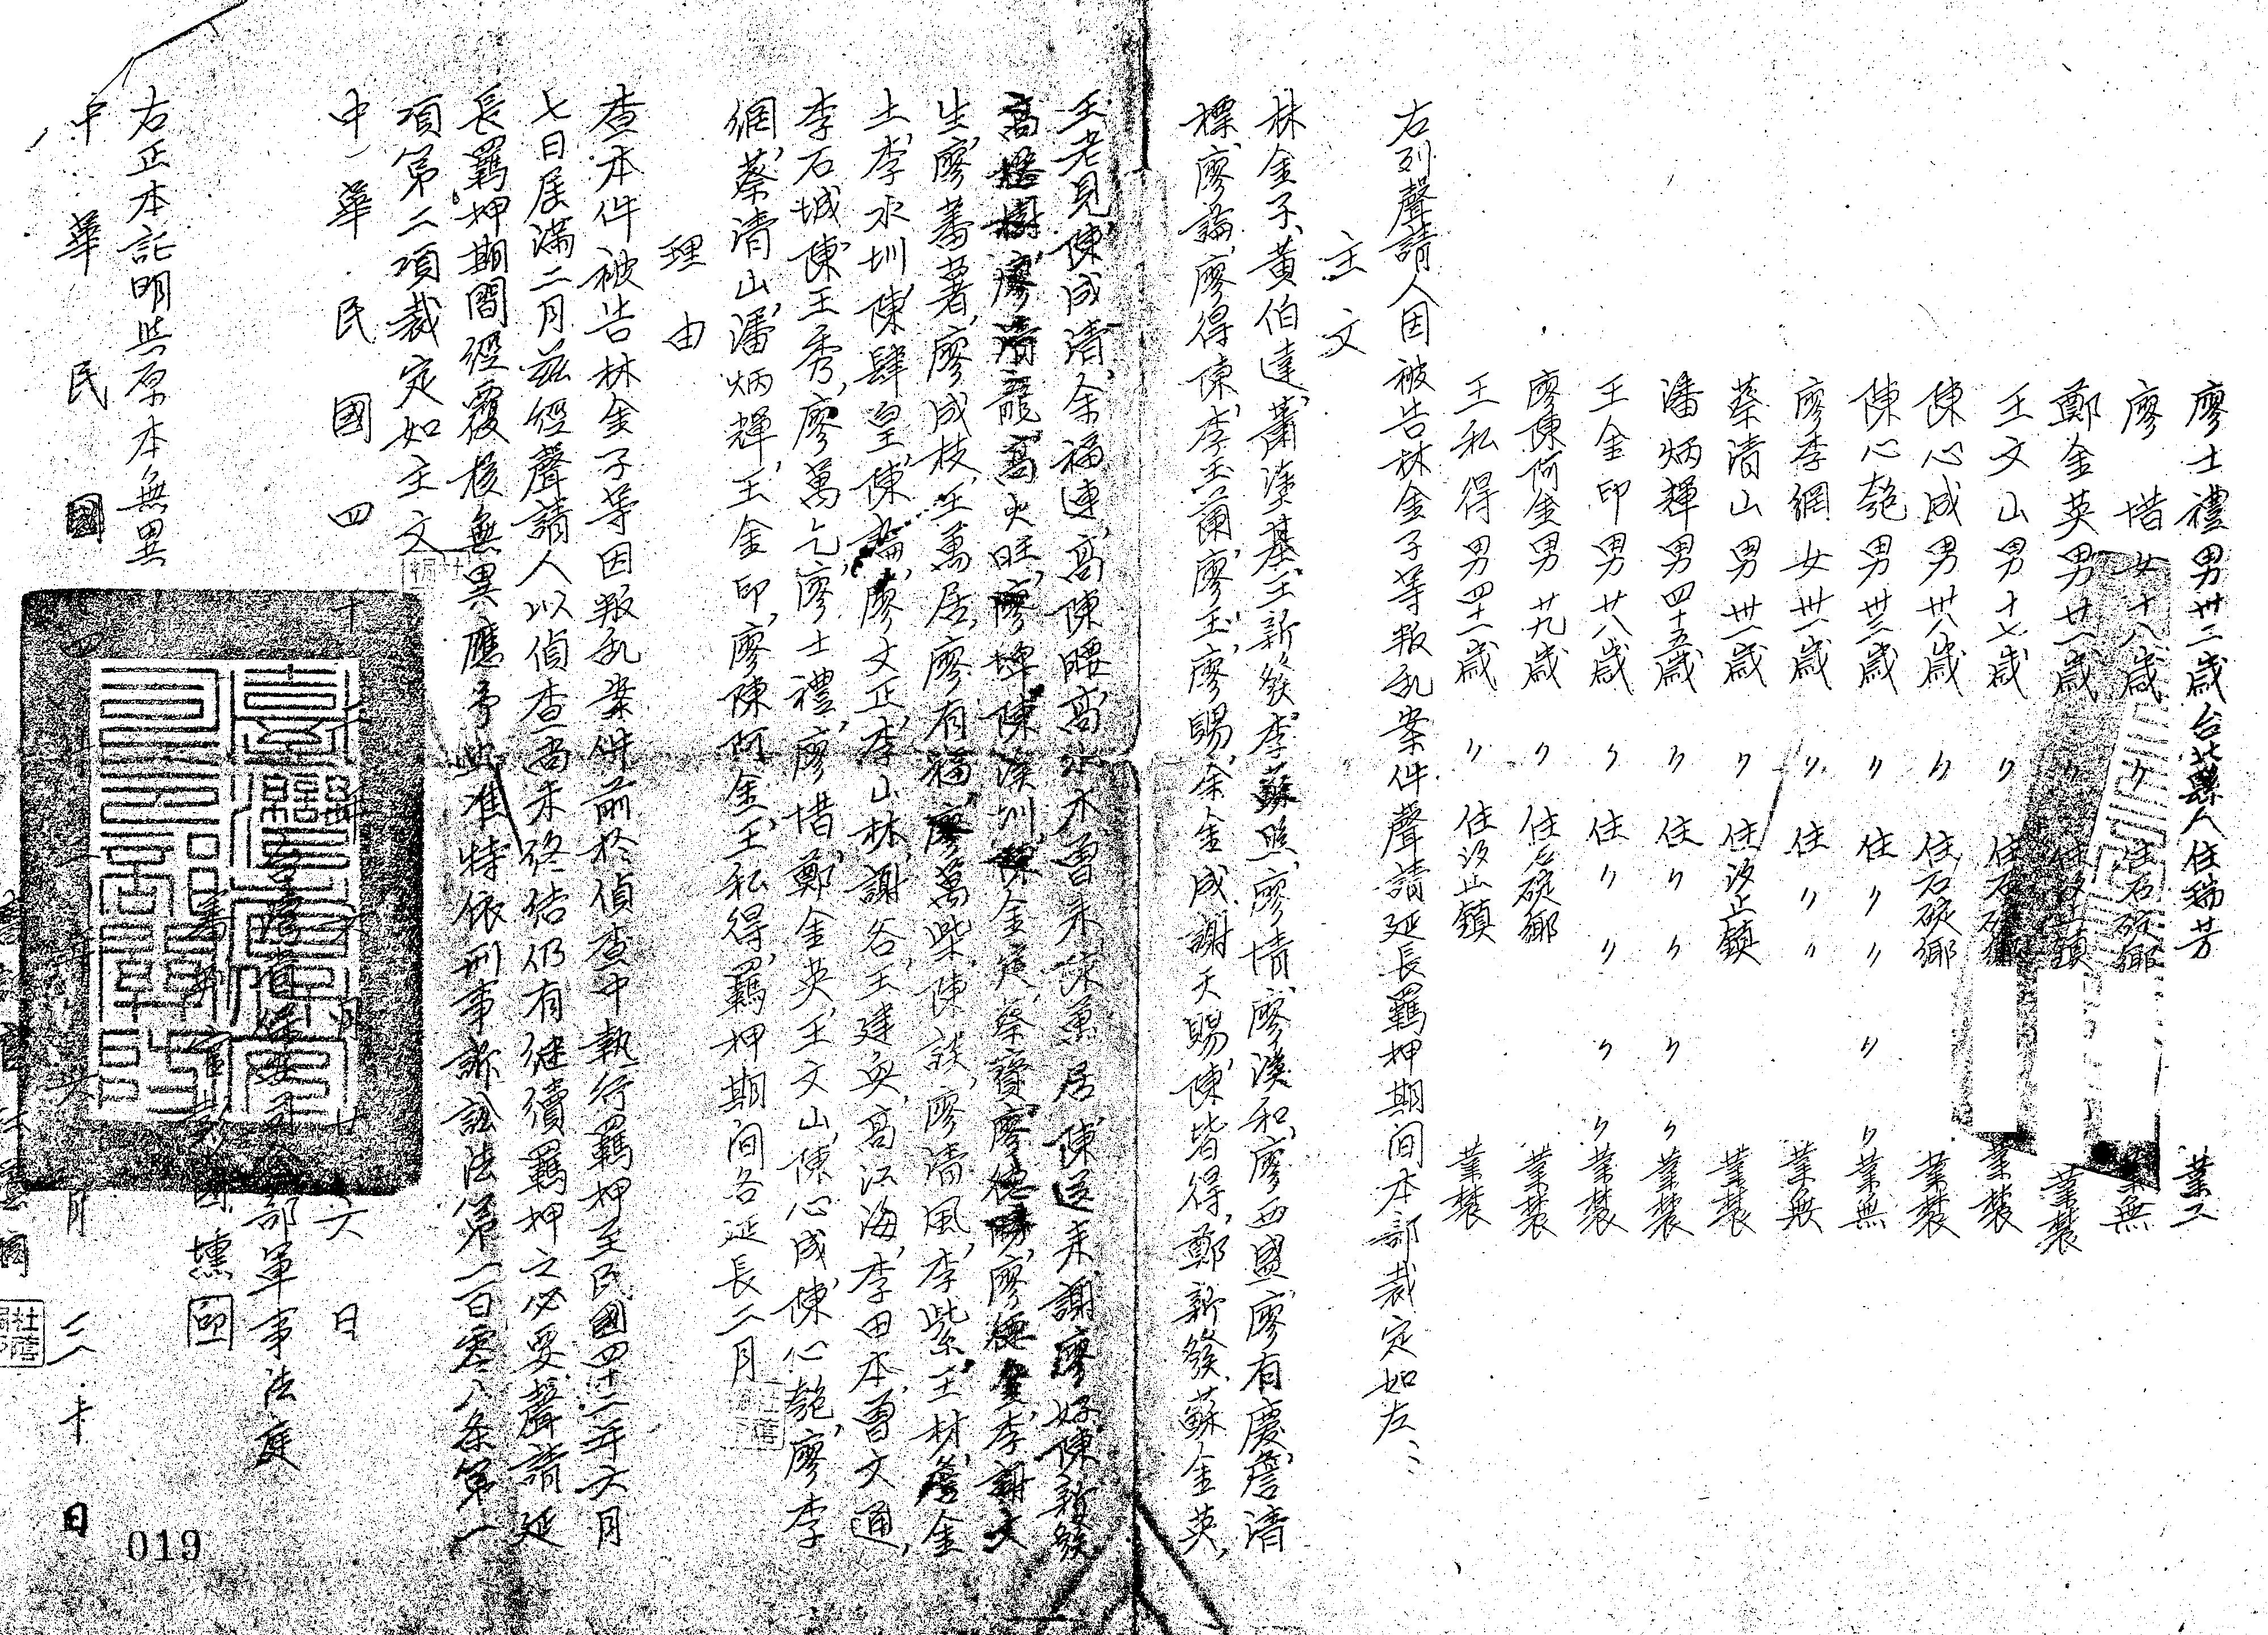 廖士禮男卅二歲台北縣人住瑞芳 業工
廖 惜女十八歲 〃 住石碇鄉 業無
鄭金英男廿一歲 〃 鎮 業農
王文山男十七歲 〃 住石碇鄉 業農
陳心成男卅八歲 〃 住石碇鄉 業農
陳心匏男卅三歲 〃 住〃〃 〃 業無
廖李網女卅一歲 〃 住〃〃 業無
蔡清山男卅一歲 〃 住汐止鎮 業農
潘炳輝男四十五歲 〃 住〃〃 〃〃 業農
王金印男廿八歲 〃 住〃〃 〃〃 業農
廖陳阿金男廿九歲 〃 住石碇鄉 業農
王私得男四十一歲 〃 住汐止鎮 業農
右列聲請人因被告林金子等叛乱案件聲請延長羈押期间本部裁定如左：
主文
林金子、黃伯達、蕭漢基、王新發、李蘇照、廖情、廖漢和、廖西盛、廖有慶、詹清
標、廖論、廖得、陳李玉蘭、廖玉、廖賜、余金成、謝天賜、陳皆得、鄭新發、蘇金英、
王老見、陳成清、余福連、高陳腰、高水木、曾來、萬居、陳送來、謝廖好、陳新發、
高 樹、廖清龍、高火旺、廖 、陳溪圳、陳金 、蔡寶、廖德勝、廖德金、李 、謝文
生、廖蕃薯、廖成枝、王萬居、廖有福、廖萬柴、陳談、廖清風、李紫、王材、詹金
土、李水圳、陳肆皇、陳論、廖文正、李山林、謝谷、王建英、高江海、李田本、曾文通、
李石城、陳王秀、廖萬乞、廖士禮、廖惜、鄭金英、王文山、陳心成、陳心匏、廖李
網、蔡清山、潘炳輝、王金印、廖陳阿金、王私得、羈押期间各延長二月
理由
查本件被告林金子等因叛乱案件前於偵查中執行羈押至民國四十二年六月
七日屆滿二月茲經聲請人以偵查尚未終結仍有继續羈押之必要聲請延
長羈押期間經覆核無異應予照准特依刑事訴訟法第一百零八条第一
項第二項裁定如主文
中華民國四十二年六月廿六日
台灣省保安司令部軍事法庭
審判官彭國壎 印
右正本証明與原本無異
中華民國四十二年 月三十日
019